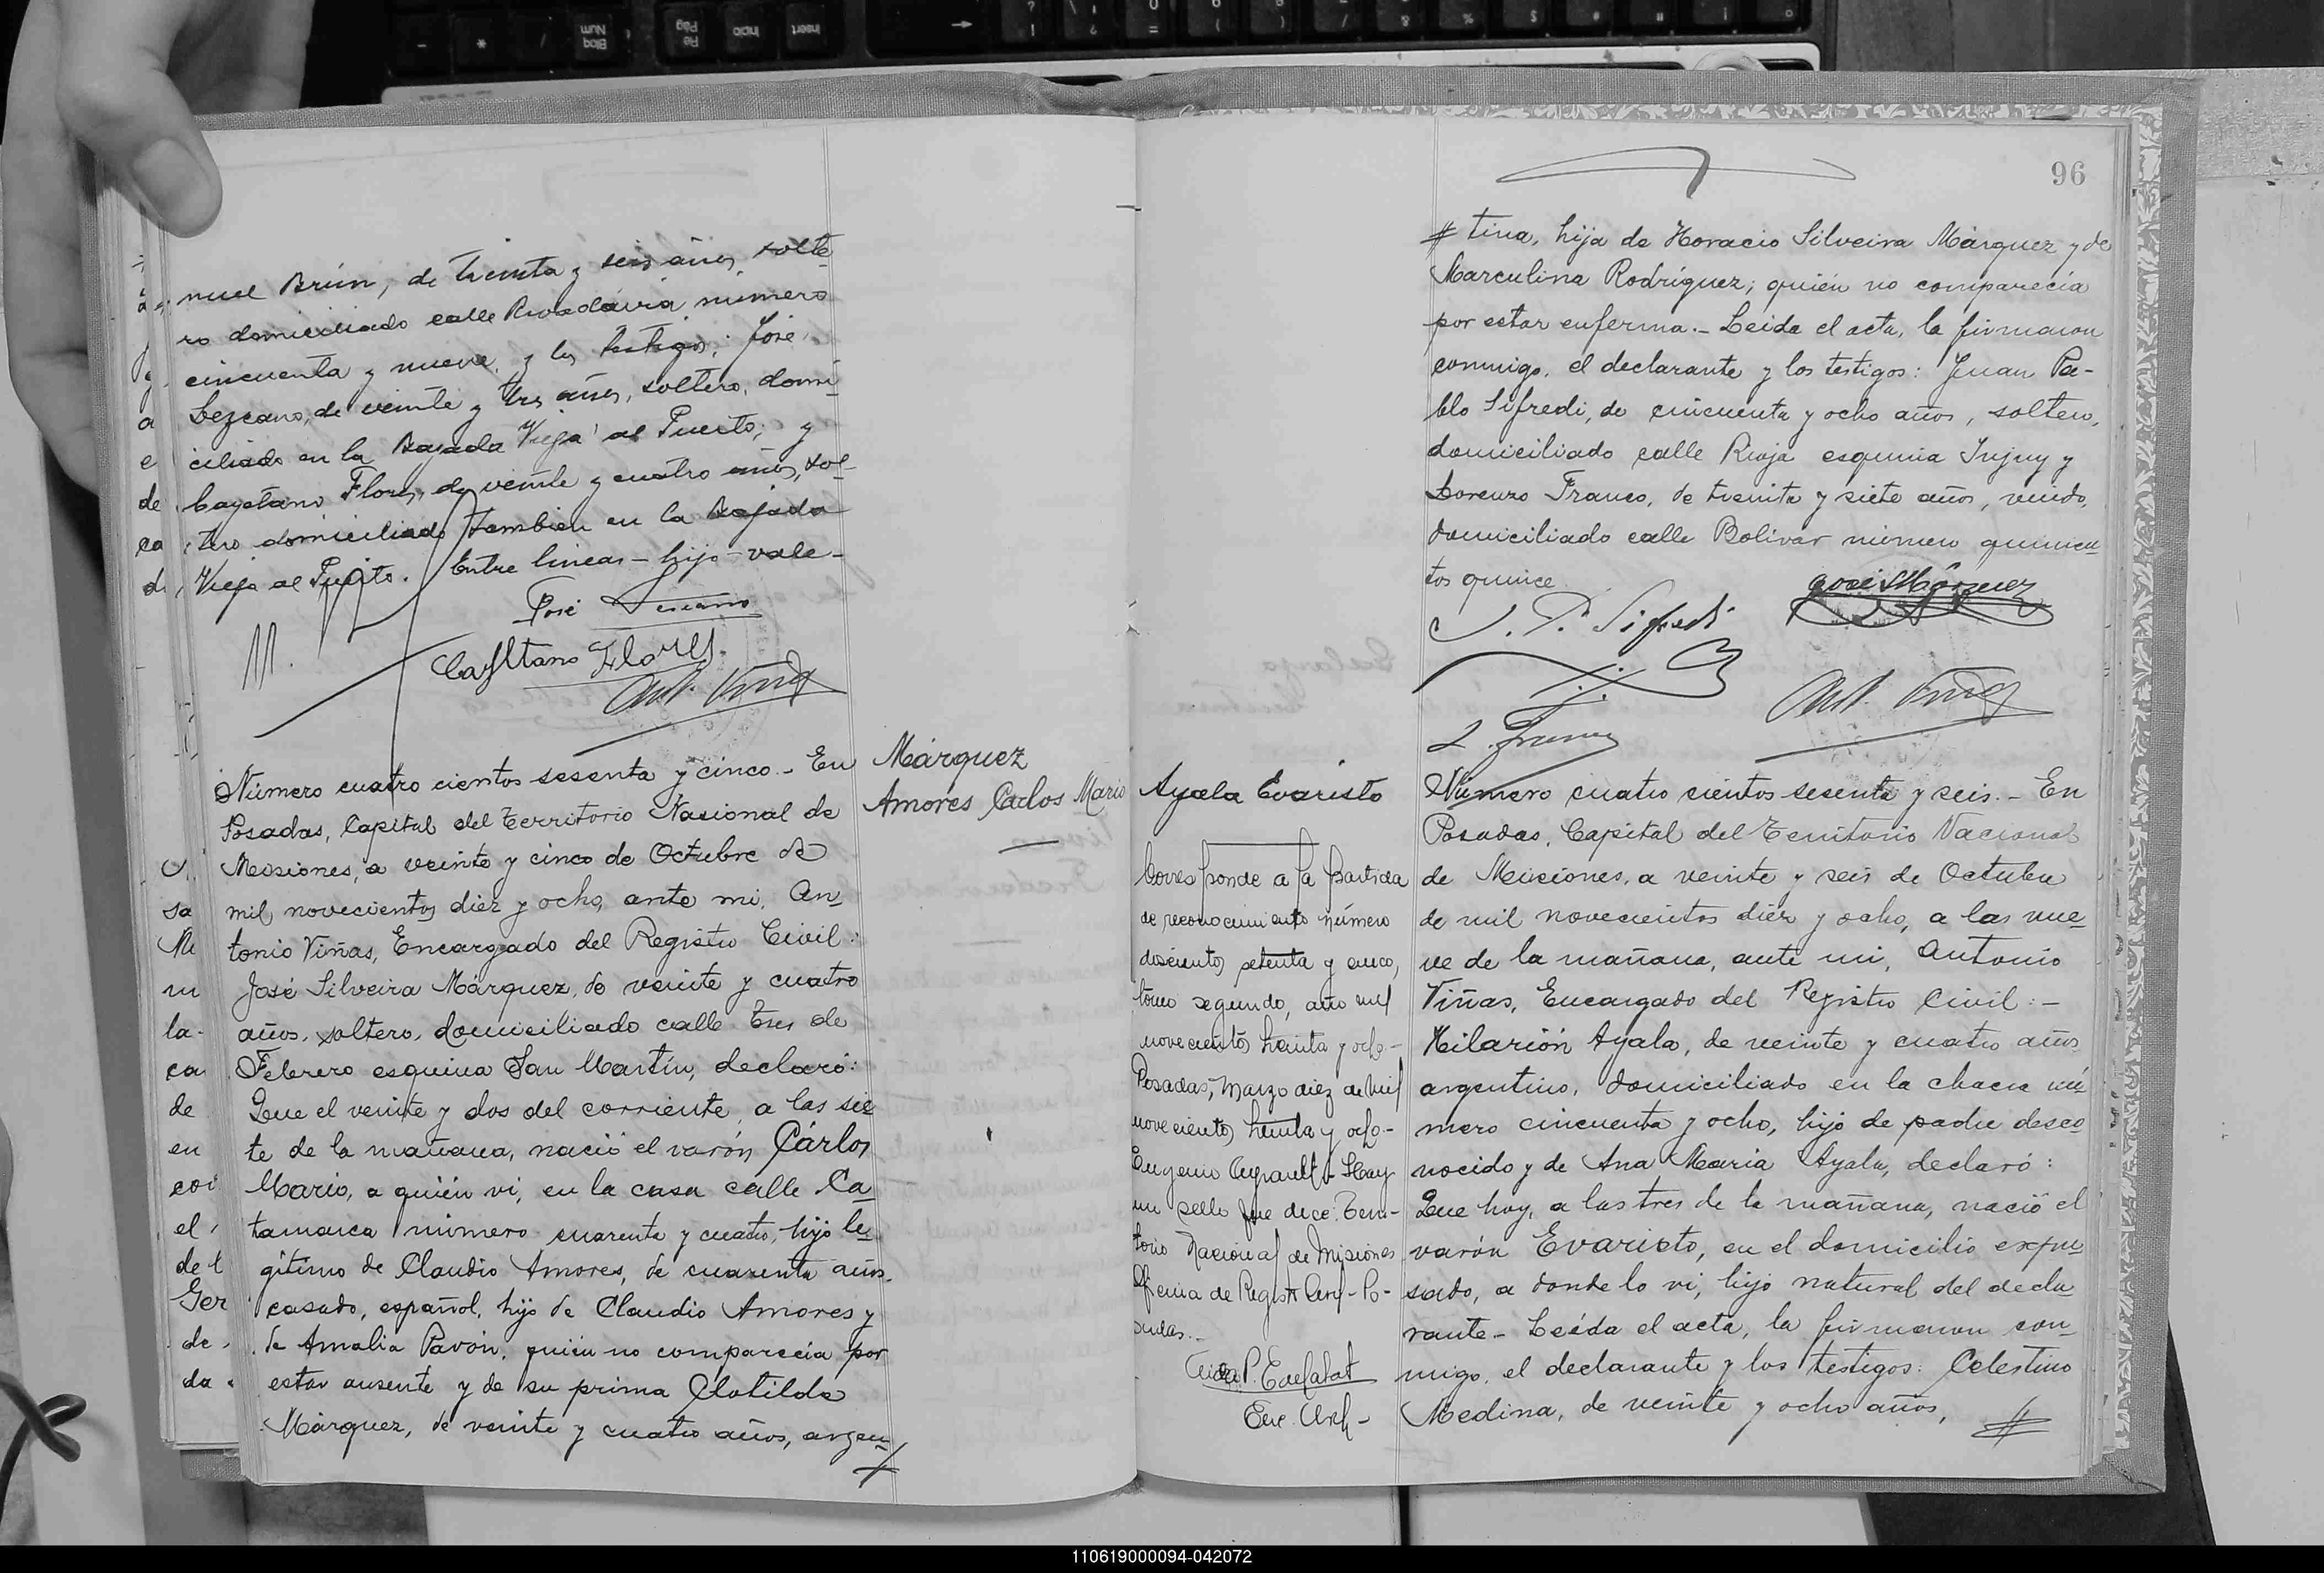 nuel Brún, de treinta y seis años, solte
ro domiciliado calle Rivadavia número
cincuenta y nueve, y los testigos: José
Lezcano, de veinte y tres años, soltero, domi
ciliado en la Bajada Vieja al Puerto; y
Cayetano Flores, de veinte y cuatro años, sol
tero domiciliado tambien en la Bajada
Vieja al Puerto. Entre lineas - hijo - vale -
José Lezcano
Cayetano Flores
Ant. Viñas
Número cuatro cientos sesenta y cinco. - En
Posadas, Capital del Territorio Nacional de
Misiones, a veinte y cinco de Octubre de
mil novecientos diez y ocho, ante mi, An
tonio Viñas, Encargado del Registro Civil:
José Silveira Márquez, de veinte y cuatro
años, soltero, domiciliado calle tres de
Febrero esquina San Martín, declaró:
Que el veinte y dos del corriente, a las sie
te de la mañana, nació el varón Cárlos
Mario, a quién vi, en la casa calle Ca
tamarca número cuarenta y cuatro, hijo le
gítimo de Claudio Amores, de cuarenta años,
casado, español, hijo de Claudio Amores y
de Amalia Pavón, quién no comparecia por
estar ausente y de su prima Clotilde
Márquez, de veinte y cuatro años, argen
Márquez
Amores Carlos Mario
96
tina, hija de Horacio Silveira Márquez y de
Marculina Rodríguez; quién no comparecía
por estar enferma. - Leida el acta, la firmaron
conmigo, el declarante y los testigos: Juan Pa-
blo Sifredi, de cincuenta y ocho años, soltero,
domiciliado calle Rioja esquina Jujuy y
Lorenzo Franco, de treinta y siete años, viudo,
domiciliado calle Bolivar número quinien
tos quince
José S Márquez
J. P. Sifredi
Ant. Viñas
L. Franco
Ayala Evaristo
Corresponde a la partida
de reconocimiento número
doscientos setenta y cinco,
tomo segundo, año mil
novecientos treinta y ocho -
Posadas, Marzo diez de mil
novecientos treinta y ocho -
Eugenio - Hay
un sello que dice: Terri-
torio Nacional de Misiones
Oficina de Registro Civil - Po-
sadas. -
Número cuatro cientos sesenta y seis. - En
Posadas, Capital del Territorio Nacional
de Misiones, a veinte y seis de Octubre
de mil novecientos diez y ocho, a las nue
ve de la mañana, ante mi, Antonio
Viñas, Encargado del Registro Civil: -
Hilarión Ayala, de veinte y cuatro años
argentino, domiciliado en la chacra nú
mero cincuenta y ocho, hijo de padre desco
nocido y de Ana María Ayala, declaró:
Que hoy, a las tres de la mañana, nació el
varón Evaristo, en el domicilio expre
sado, a donde lo vi, hijo natural del decla
rante - Leída el acta, la firmaron con
migo, el declarante y los testigos: Celestino
Medina, de veinte y ocho años,
110619000094-042072